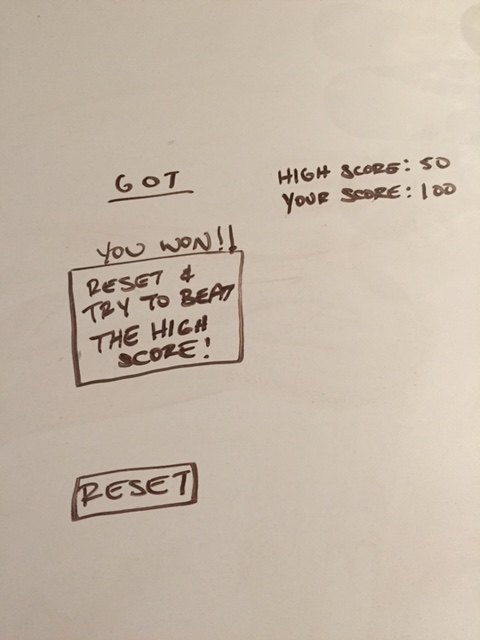 GOT
HIGH SCORE: 50
YOUR SCORE: 100
YOU WON!!
RESET &
TRY TO BEAT
THE HIGH
SCORE!
RESET